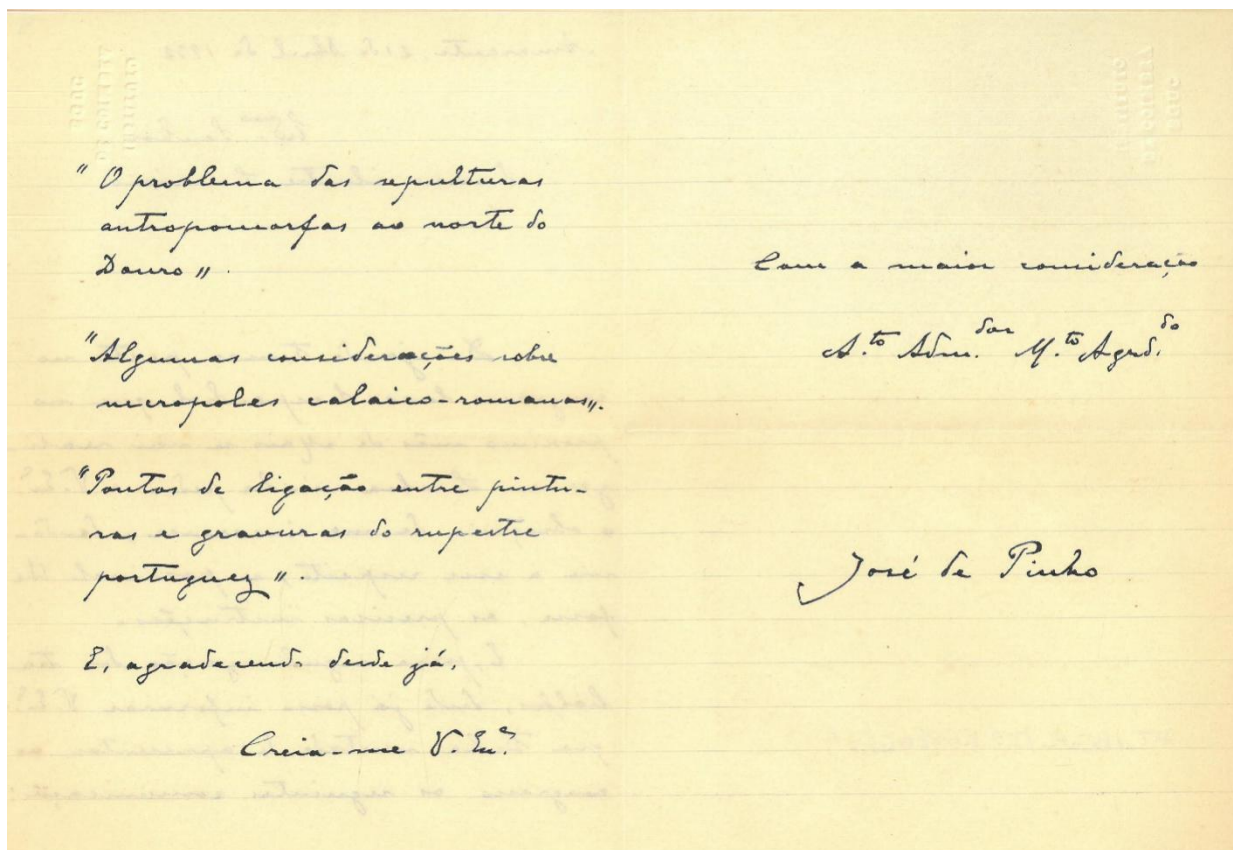 "O problema das sepulturas
antropomorfas ao norte do
Douro".
"Algumas considerações sobre
necropoles calaico-romanas".
"Pontos de ligação entre pintu-
ras e gravuras do rupestre
portuguez".
E, agradecendo desde já,
Creia-me V. Exª
Com a maior consideração
A.to Adm.dor M.to Agrd.do
José de Pinho